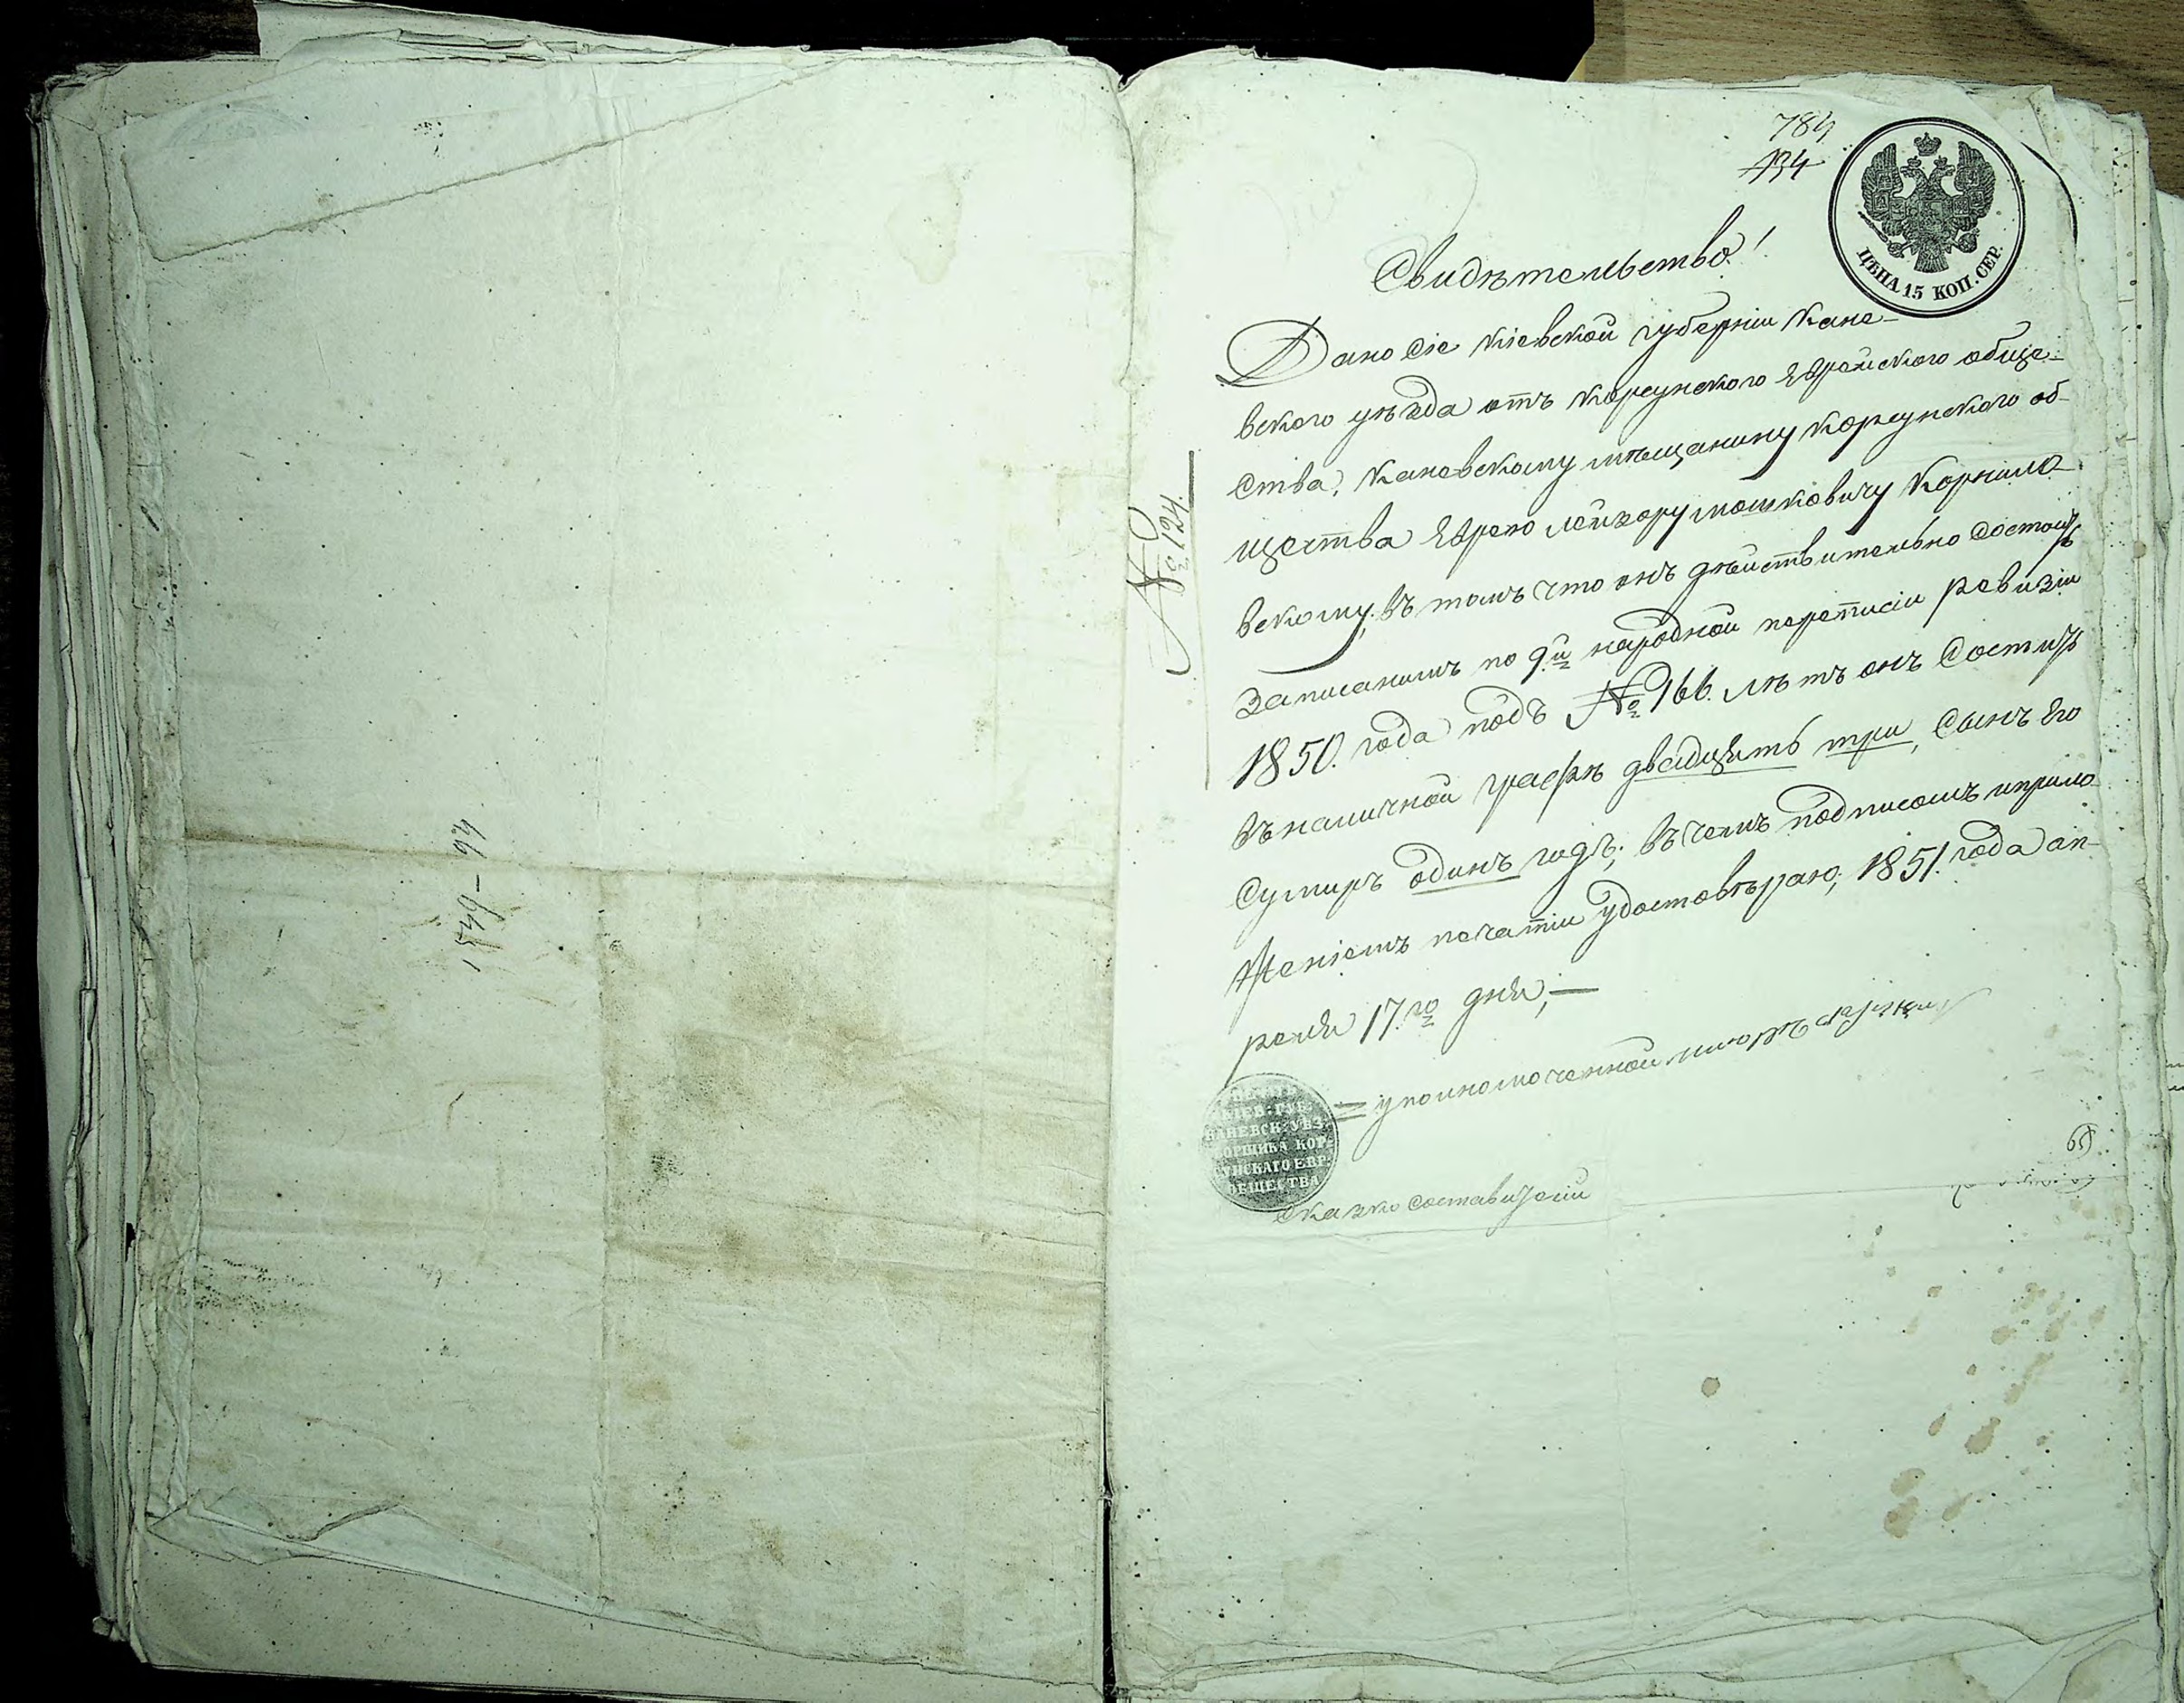 1849-94
784
434
ЦѢНА 15 КОП. СЕР.
№ 124.
Свидѣтельство!
Дано Сіе Кіевской губерніи Кане-
вского уѣзда отъ Корсунского Еврейского обще-
Ства, Каневскому мѣщанину Корсунского об-
щества Еврею Лейзору Мошковичу Корнило-
вскому, въ томъ что онъ дѣйствительно состоитъ
Записанымъ по 9й народной переписи ревизіи
1850. года подъ № 166. лѣтъ онъ Соститъ
въ наличной графѣ двадцать три, Сынъ Его
Сумиръ одинъ годъ; въ чемъ подписомъ и прило-
женіемъ печатіи удостовѣраю; 1851. года ап-
реля 17го дня;—
уполномоченной
КІЕВ: ГУБ:
КАНЕВСК: УѢЗ:
БОРЩИКА КОР-
СУНСКАГО ЕВР:
ОБЩЕСТВА
Сказко Составители